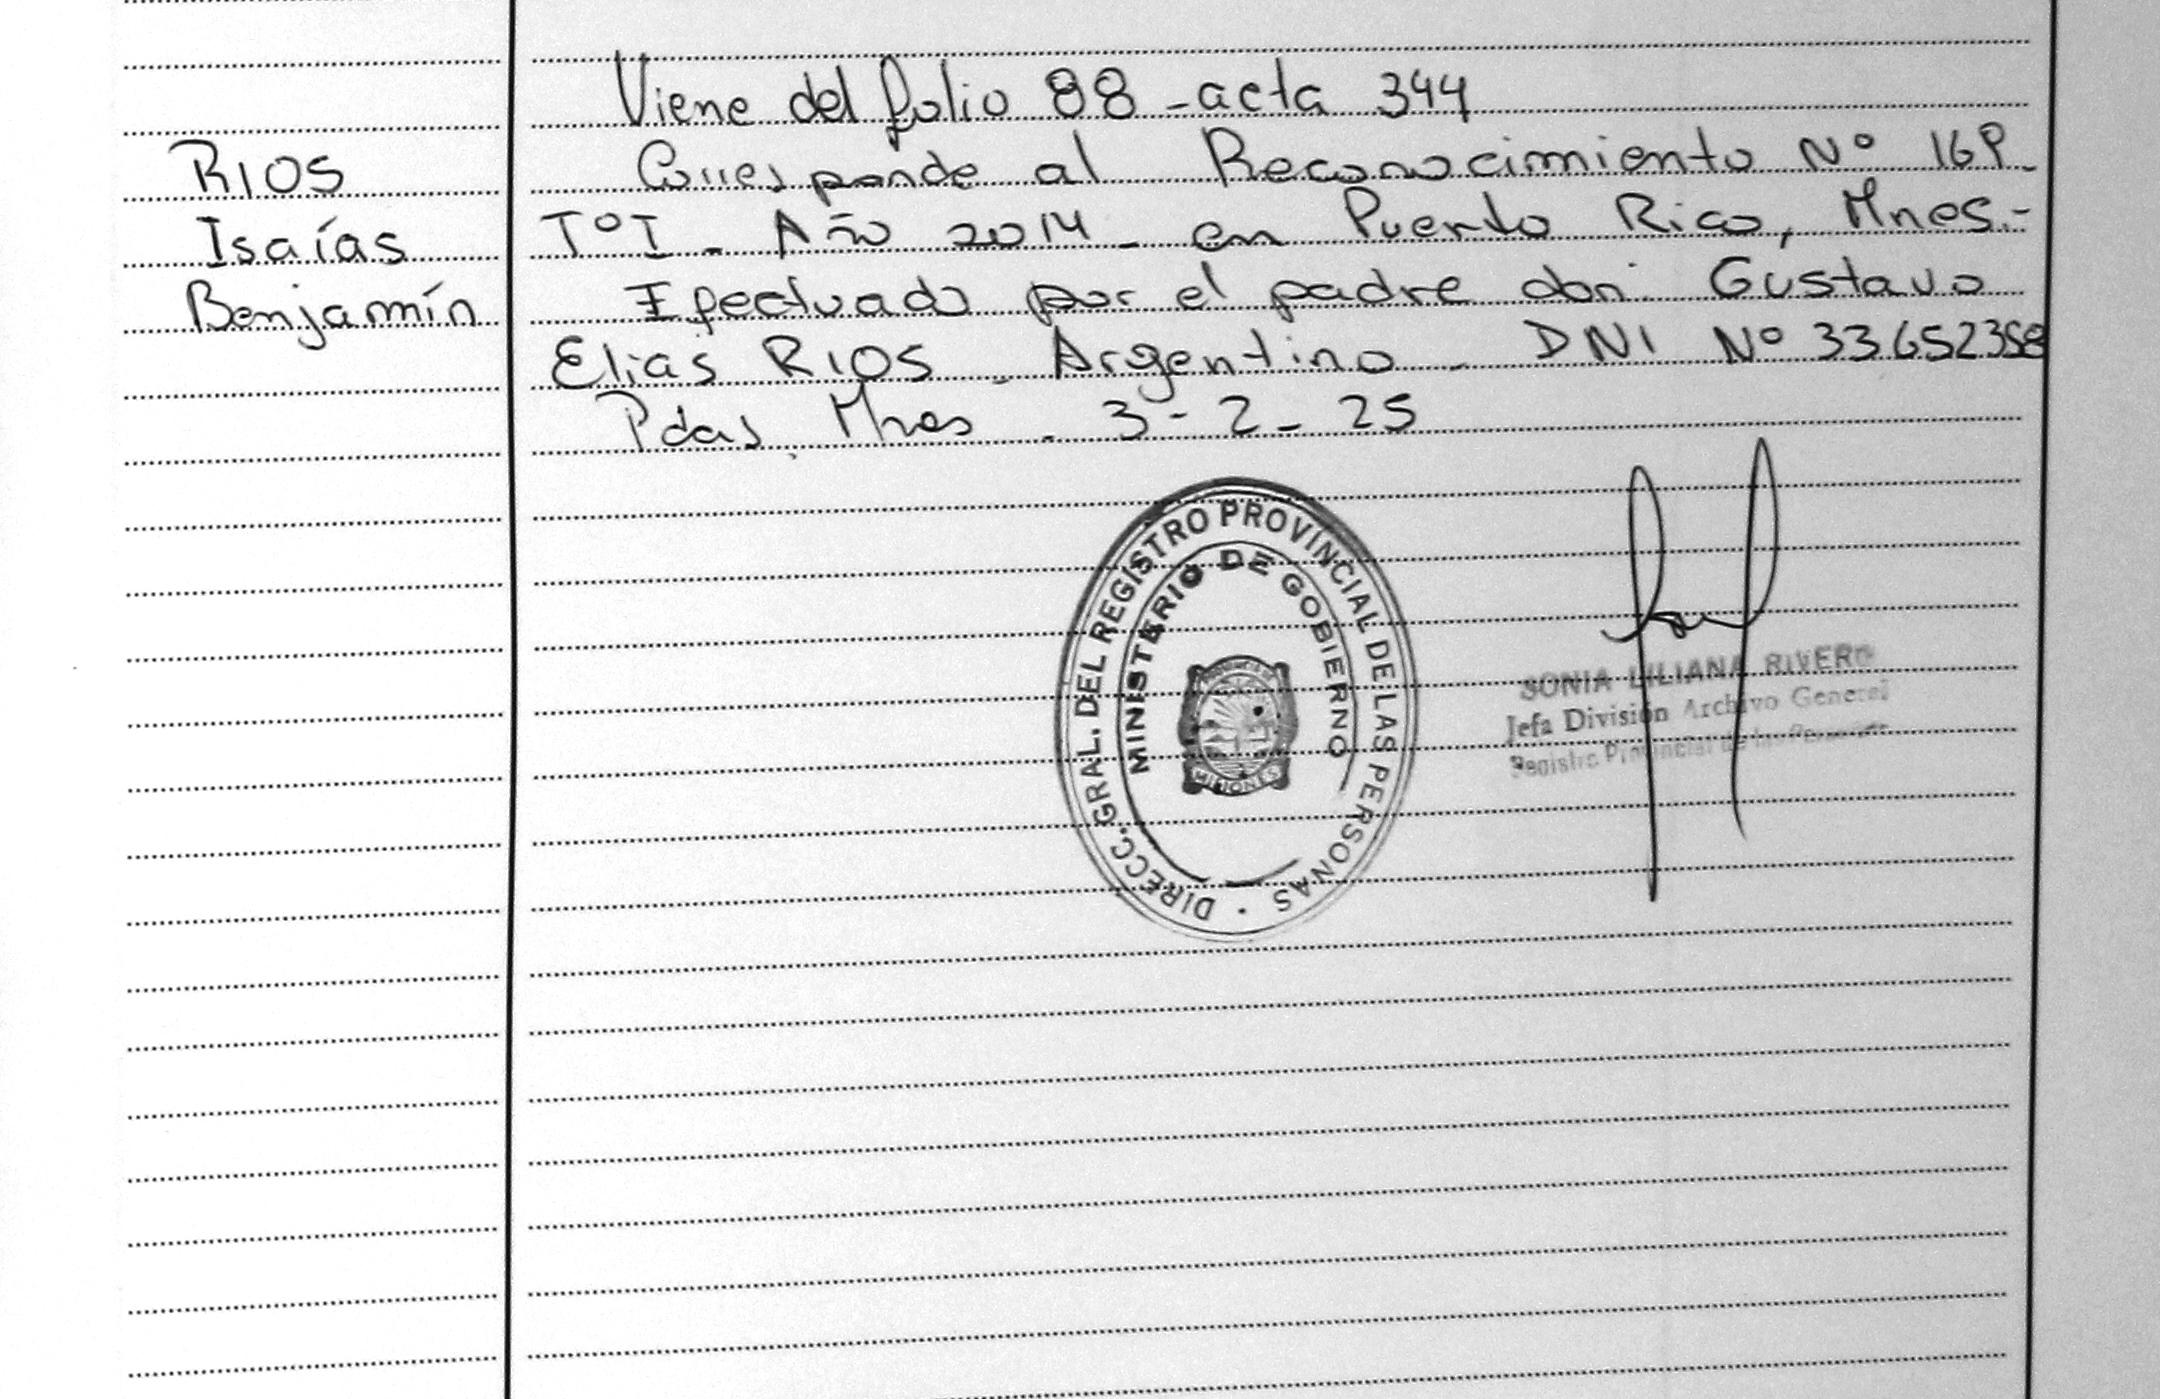 Viene del folio 88 - acta 344
RIOS
Isaías
Benjamín
Corresponde al Reconocimiento Nº 169-
TºI - Año 2014 - en Puerto Rico, Mnes.-
Efectuado por el padre don: Gustavo
Elias RIOS - Argentino - DNI Nº 33652358
Pdas, Mnes - 3-2-25
DIRECC. GRAL. DEL REGISTRO PROVINCIAL DE LAS PERSONAS
MINISTERIO DE GOBIERNO
MISIONES
SONIA LILIANA RIVERO
Jefa División Archivo General
Registro Provincial de las Personas